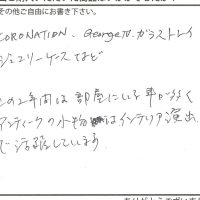 その他ご自由にお書き下さい。
CORONATION. George Ⅳ. ガラストレイ
ジュエリーケースなど
この2年間は部屋にいる事が多く
アンティークの小物はインテリア演出
で活躍しています